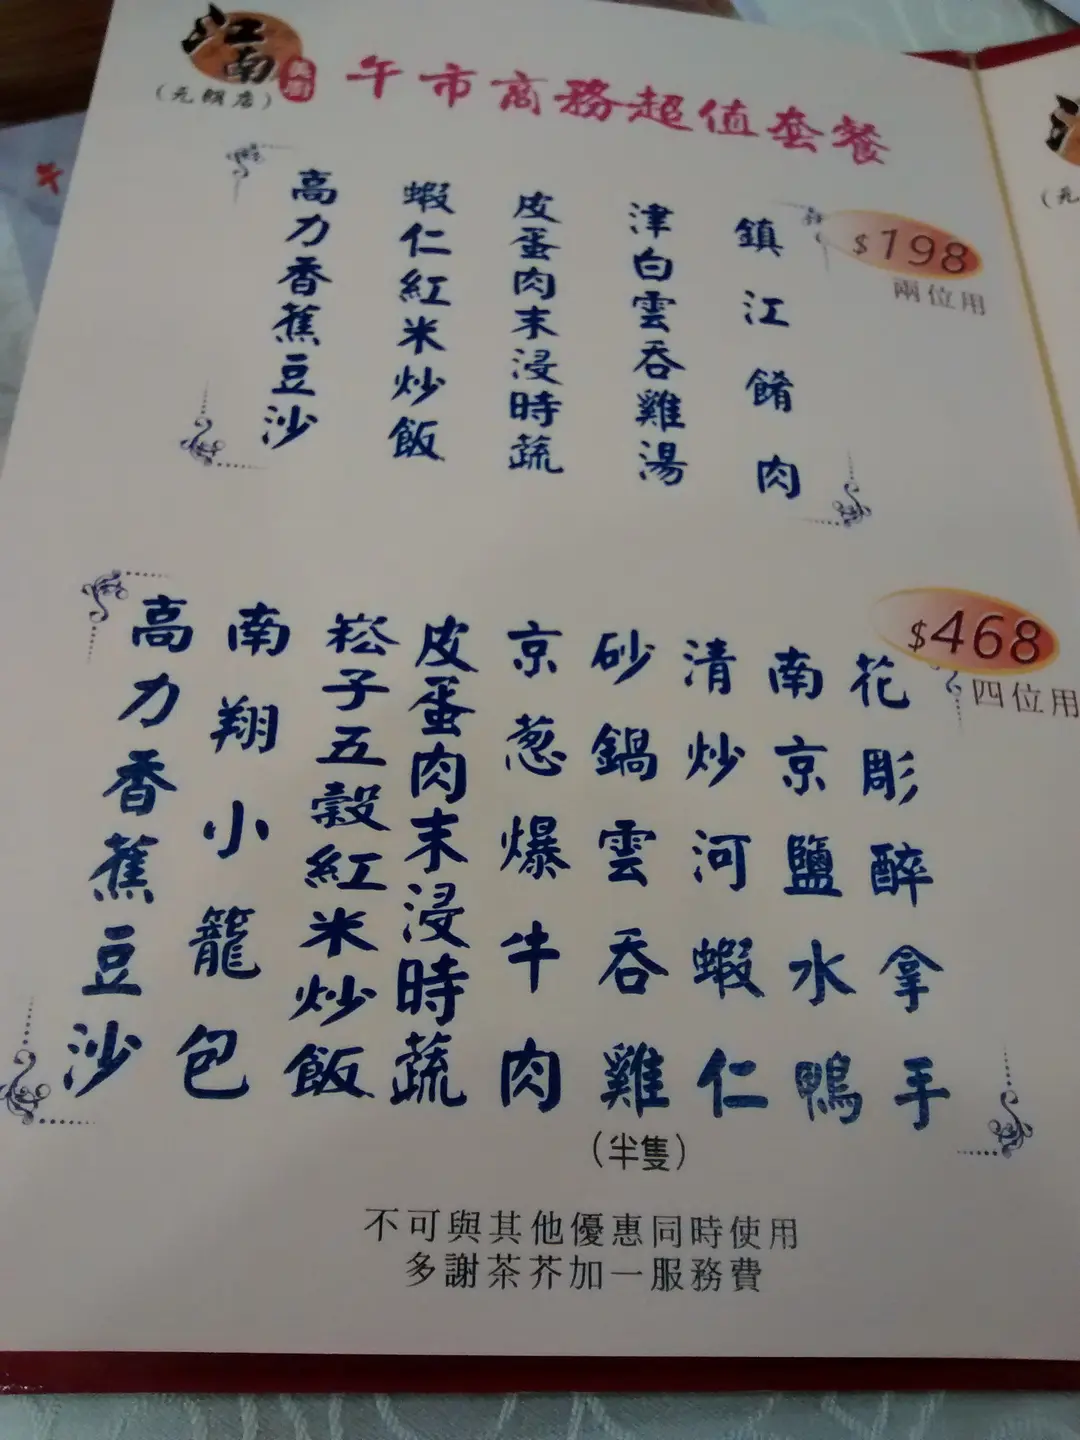 江南
美廚
(元朗店)
午市商務超值套餐
$198
兩位用
鎮江餚肉
津白雲吞雞湯
皮蛋肉末浸時蔬
蝦仁紅米炒飯
高力香蕉豆沙
$468
四位用
花彫醉拿手
南京鹽水鴨
清炒河蝦仁
砂鍋雲吞雞
(半隻)
京葱爆牛肉
皮蛋肉末浸時蔬
崧子五穀紅米炒飯
南翔小籠包
高力香蕉豆沙
不可與其他優惠同時使用
多謝茶芥加一服務費